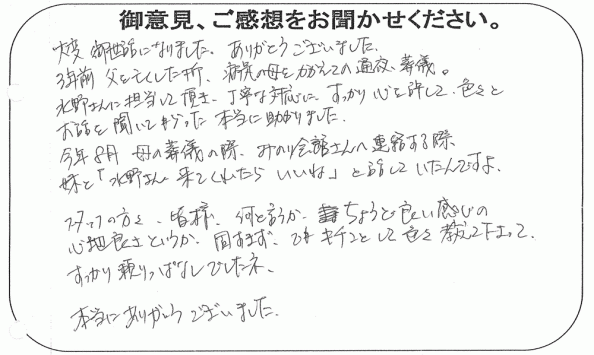 御意見、ご感想をお聞かせください。
大変 御世話になりました。ありがとうございました。
3年前 父を亡くした折、病気の母をかかえての通夜、葬儀。
水野さんに担当して頂き、丁寧な対応に すっかり心を許して、色々と
お話を聞いてもらった 本当に助かりました。
今年8月 母の葬儀の際、みのり会館さんへ連絡する際
妹と「水野さん来てくれたら いいね」と話していたんですよ。
スタッフの方々、皆様、何と言うか、ちょうど良い感じの
心地良さというか、固すぎず、でもキチンとして色々教えて下さって、
すっかり頼りっぱなしでしたネ、
本当にありがとうございました。